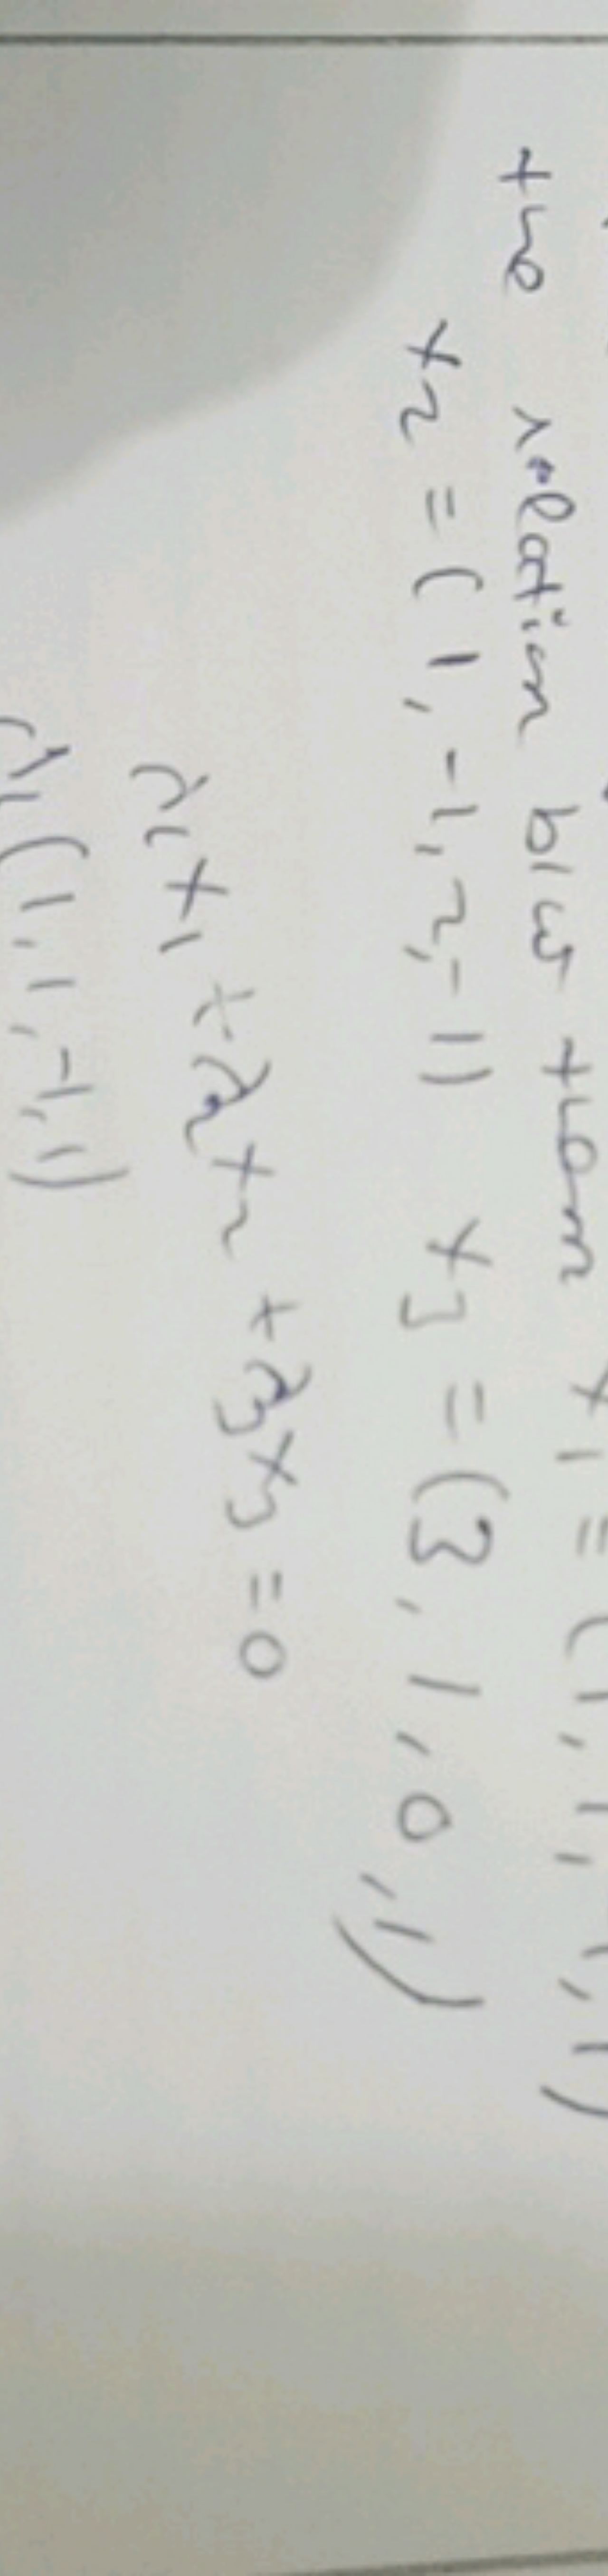 the relation b/w them x1 = (1, 1, -1, 1)
x2 = (1, -1, 2, -1) x3 = (3, 1, 0, 1)
λ1x1 + λ2x2 + λ3x3 = 0
λ1(1, 1, -1, 1)